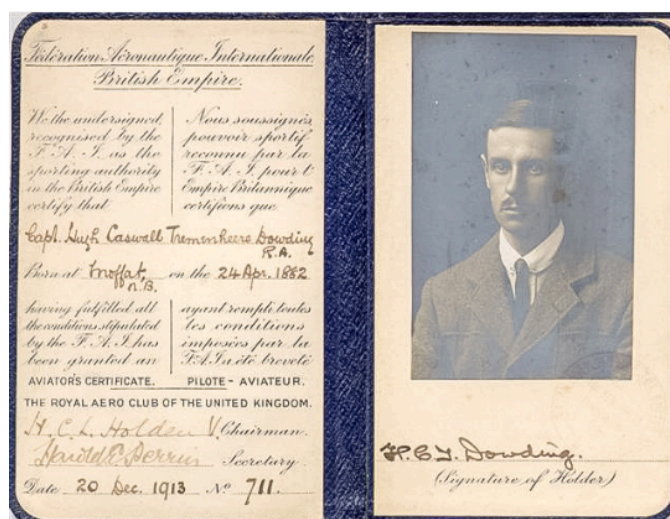 Fédération Aéronautique Internationale
British Empire.
We the undersigned,
recognised by the
F. A. I. as the
sporting authority
in the British Empire
certify that
Nous soussignés,
pouvoir sportif
reconnu par la
F. A. I. pour l'
Empire Britannique
certifions que
Capt. Hugh Caswall Tremenheere Dowding
R.A.
Born at Moffat, on the 24 Apr. 1882
N.B.
having fulfilled all
the conditions stipulated
by the F. A. I. has
been granted an
ayant rempli toutes
les conditions
imposées par la
F.A.I. a été breveté
AVIATOR'S CERTIFICATE. PILOTE - AVIATEUR.
THE ROYAL AERO CLUB OF THE UNITED KINGDOM.
H. C. L. Holden V. Chairman.
Harold E Perrin Secretary.
Date 20 Dec. 1913 No 711.
H. C. T. Dowding.
(Signature of Holder)